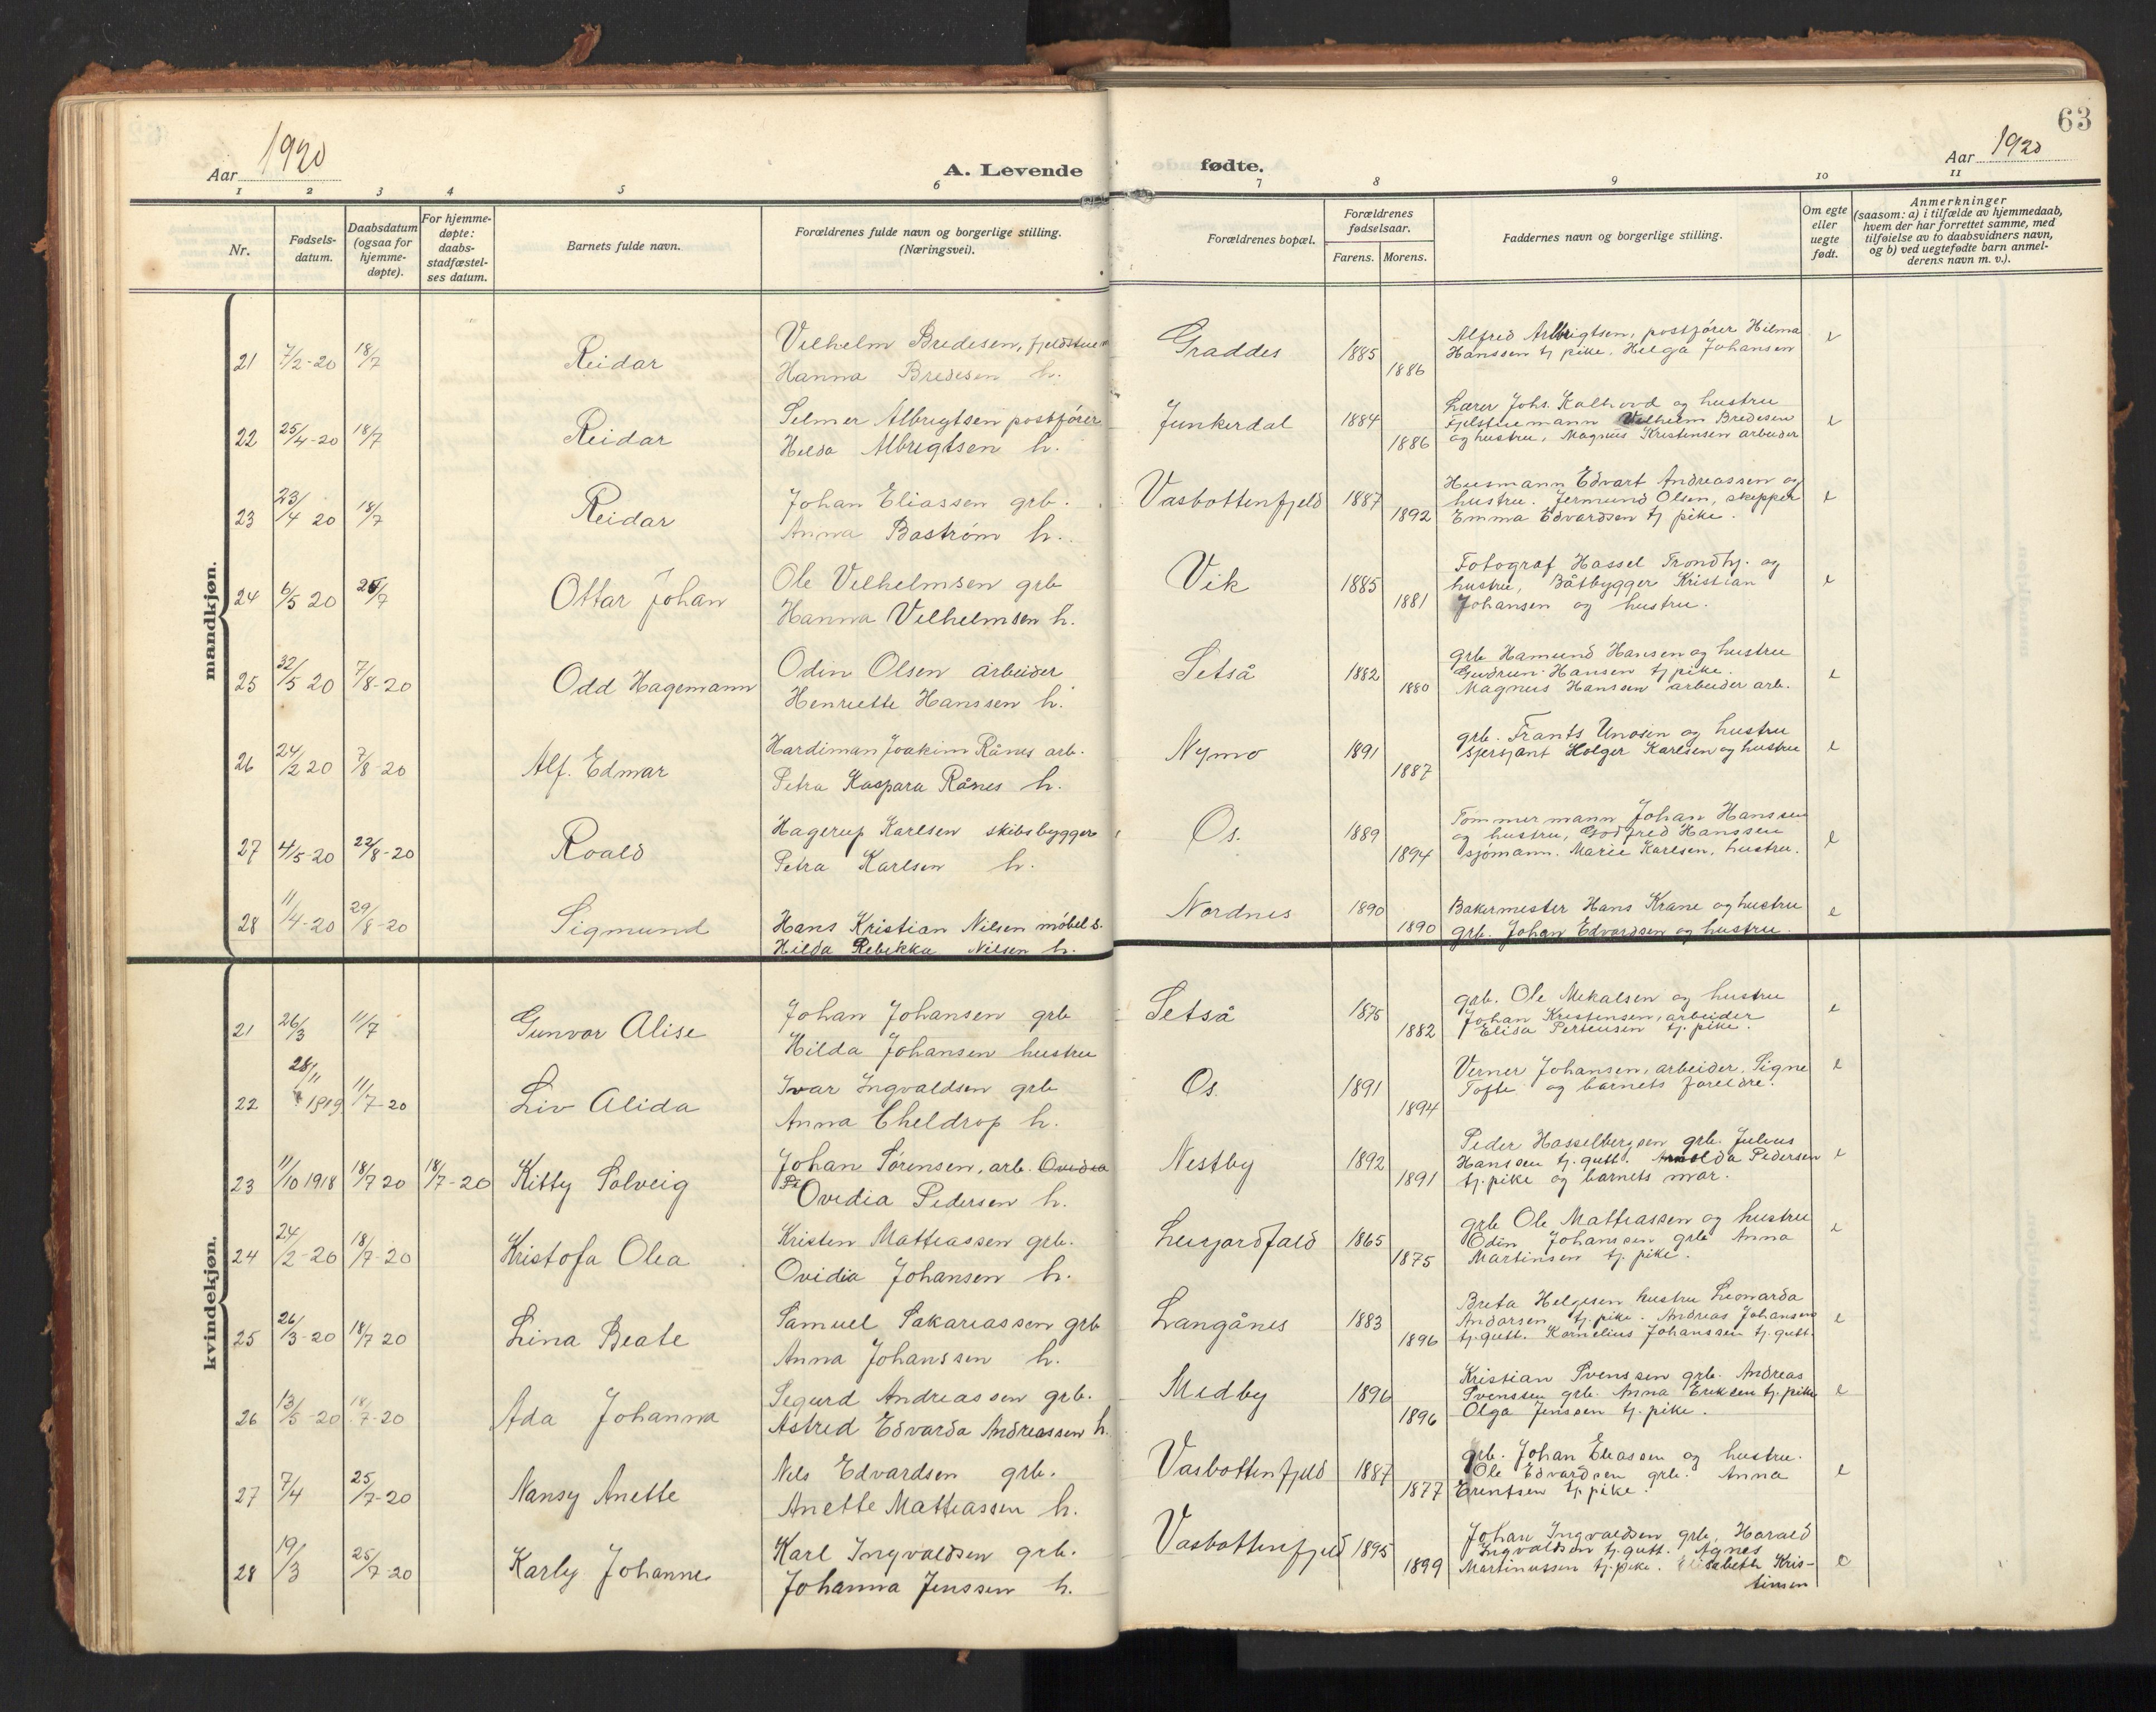 63
Aar 1920
A. Levende fødte.
Aar 1920
1 2 3 4 5 6 7 8 9 10 11
Nr.
Fødsels-
datum.
Daabsdatum
(ogsaa for
hjemme-
døpte).
For hjemme-
døpte:
daabs-
stadfæstel-
ses datum.
Barnets fulde navn.
Forældrenes fulde navn og borgerlige stilling.
(Næringsvei).
Forældrenes bopæl.
Forældrenes
fødselsaar.
Farens. Morens.
Faddernes navn og borgerlige stilling.
Om egte
eller
uegte
født.
Anmerkninger
(saasom: a) i tilfælde av hjemmedaab,
hvem der har forrettet samme, med
tilføielse av to daabsvidners navn,
og b) ved uegtefødte barn anmel-
derens navn m. v.).
mandkjøn.
21 7/2-20 18/7 Reidar
Vilhelm Bredesen, fjeldstuem
Hanna Bredesen h.
Graddes 1885 1886
Alfred Albrigtsen, postfører Hilma
Hanssen tj pike. Helga Johansen
e
22 25/4-20 18/7 Reidar
Selmer Albrigtsen postfører
Helda Albrigtsen h.
Junkerdal 1884 1886
Lærer Johs. Kalhovd og hustru
Fjelstuemann Vilhelm Bredesen
og hustru, Magnus Kristensen arbeider
e
23 23/4 20 18/7 Reidar
Johan Eliassen grb.
Anna Bostrøm h.
Vasbottenfjeld 1887 1892
Husmann Edvart Andreassen og
hustru. Jermund Olsen, skipper
Emma Edvardsen tj pike.
e
24 6/5 20 25/7 Ottar Johan
Ole Vilhelmsen grb
Hanna Vilhelmsen h.
Vik 1885 1881
Fotograf Hassel Trondhj. og
hustru, Båtbygger Kristian
Johansen og hustru.
e
25 32/5 20 7/8-20 Odd Hagemann
Odin Olsen arbeider
Henriette Hanssen h.
Setså 1882 1880
grb Hamund Hansen og hustru
Gudrun Hansen tj pike.
Magnus Hanssen arbeider arb.
e
26 24/2 20 7/8-20 Alf. Edmar
Hardiman Joakim Rånes arb.
Petra Kaspara Rånes h.
Nymo 1891 1887
grb. Frants Unosen og hustru
sjersjant Holger Karlsen og hustru
e
27 4/5-20 22/8-20 Roald
Hagerup Karlsen skibsbygger
Petra Karlsen h.
Os. 1889 1894
Tømmermann Johan Hanssen
og hustru, Godfred Hanssen
sjømann. Marie Karlsen, hustru.
e
28 11/4-20 29/8-20 Sigmund
Hans Kristian Nilsen møbels.
Hilda Rebekka Nilsen h.
Nordnes 1890 1890
Bakermester Hans Krane og hustru
grb. Johan Edvardsen og hustru.
e
kvindekjøn.
21 26/3 11/7 Gunvor Alise
Johan Johansen grb
Hilda Johansen hustru
Setså 1875 1882
grb. Ole Mikalsen og hustru
Johan Kristensen, arbeider
Elida Pertensen tj. pike.
e
22 28/11 1919 11/7-20 Liv Alida
Ivar Ingvaldsen grb
Anna Eheldrop h.
Os. 1891 1894
Verner Johansen, arbeider. Signe
Tofte og barnets foreldre.
e
23 11/10 1918 18/7 20 18/7-20 Kitty Solveig
Johan Sørensen, arb. Ovidia
Pe Ovidia Pedersen h.
Nestby 1892 1891
Peder Hasselbergsen grb. Julius
Hanssen tj. gutt. Arnolda Pedersen
tj. pike og barnets mor.
e
24 24/2-20 18/7-20 Kristofa Olea
Kristen Mattiassen grb.
Ovidia Johansen h.
Leirjordfald 1865 1875
grb Ole Mattiassen og hustru
Odin Johanssen grb Anna
Martinsen tj. pike.
e
25 26/3-20 18/7 20 Lina Beate
Samuel Sakariassen grb
Anna Johanssen h.
Langånes 1883 1896
Breta Helgesen hustru Leonarda
Andorsen tj. pike. Andreas Johansen
tj. gutt. Kornelius Johanssen tj. gutt.
e
26 13/5-20 18/7-20 Ada Johanna
Segurd Andreassen grb.
Astrid Edvarda Andreassen h.
Medby 1896 1896
Kristian Svenssen grb. Andreas
Svenssen grb. Anna Eriksen tj. pike
Olga Jenssen tj. pike.
e
27 7/4 25/7-20 Nansy Anette
Nils Edvardsen grb.
Anette Mattiassen h.
Vasbottenfjeld 1887 1877
grb. Johan Eliassen og hustru.
Ole Edvardsen grb. Anna
Erentsen tj pike.
e
28 19/3 25/7-20 Karly Johanne
Karl Ingvaldsen grb.
Johanna Jenssen h.
Vasbottenfjeld 1895 1899
Johan Ingvaldsen grb, Harald
Ingvaldsen tj. gutt. Agnes
Martinussen tj. pike. Elisabeth Kris-
tinsen
e